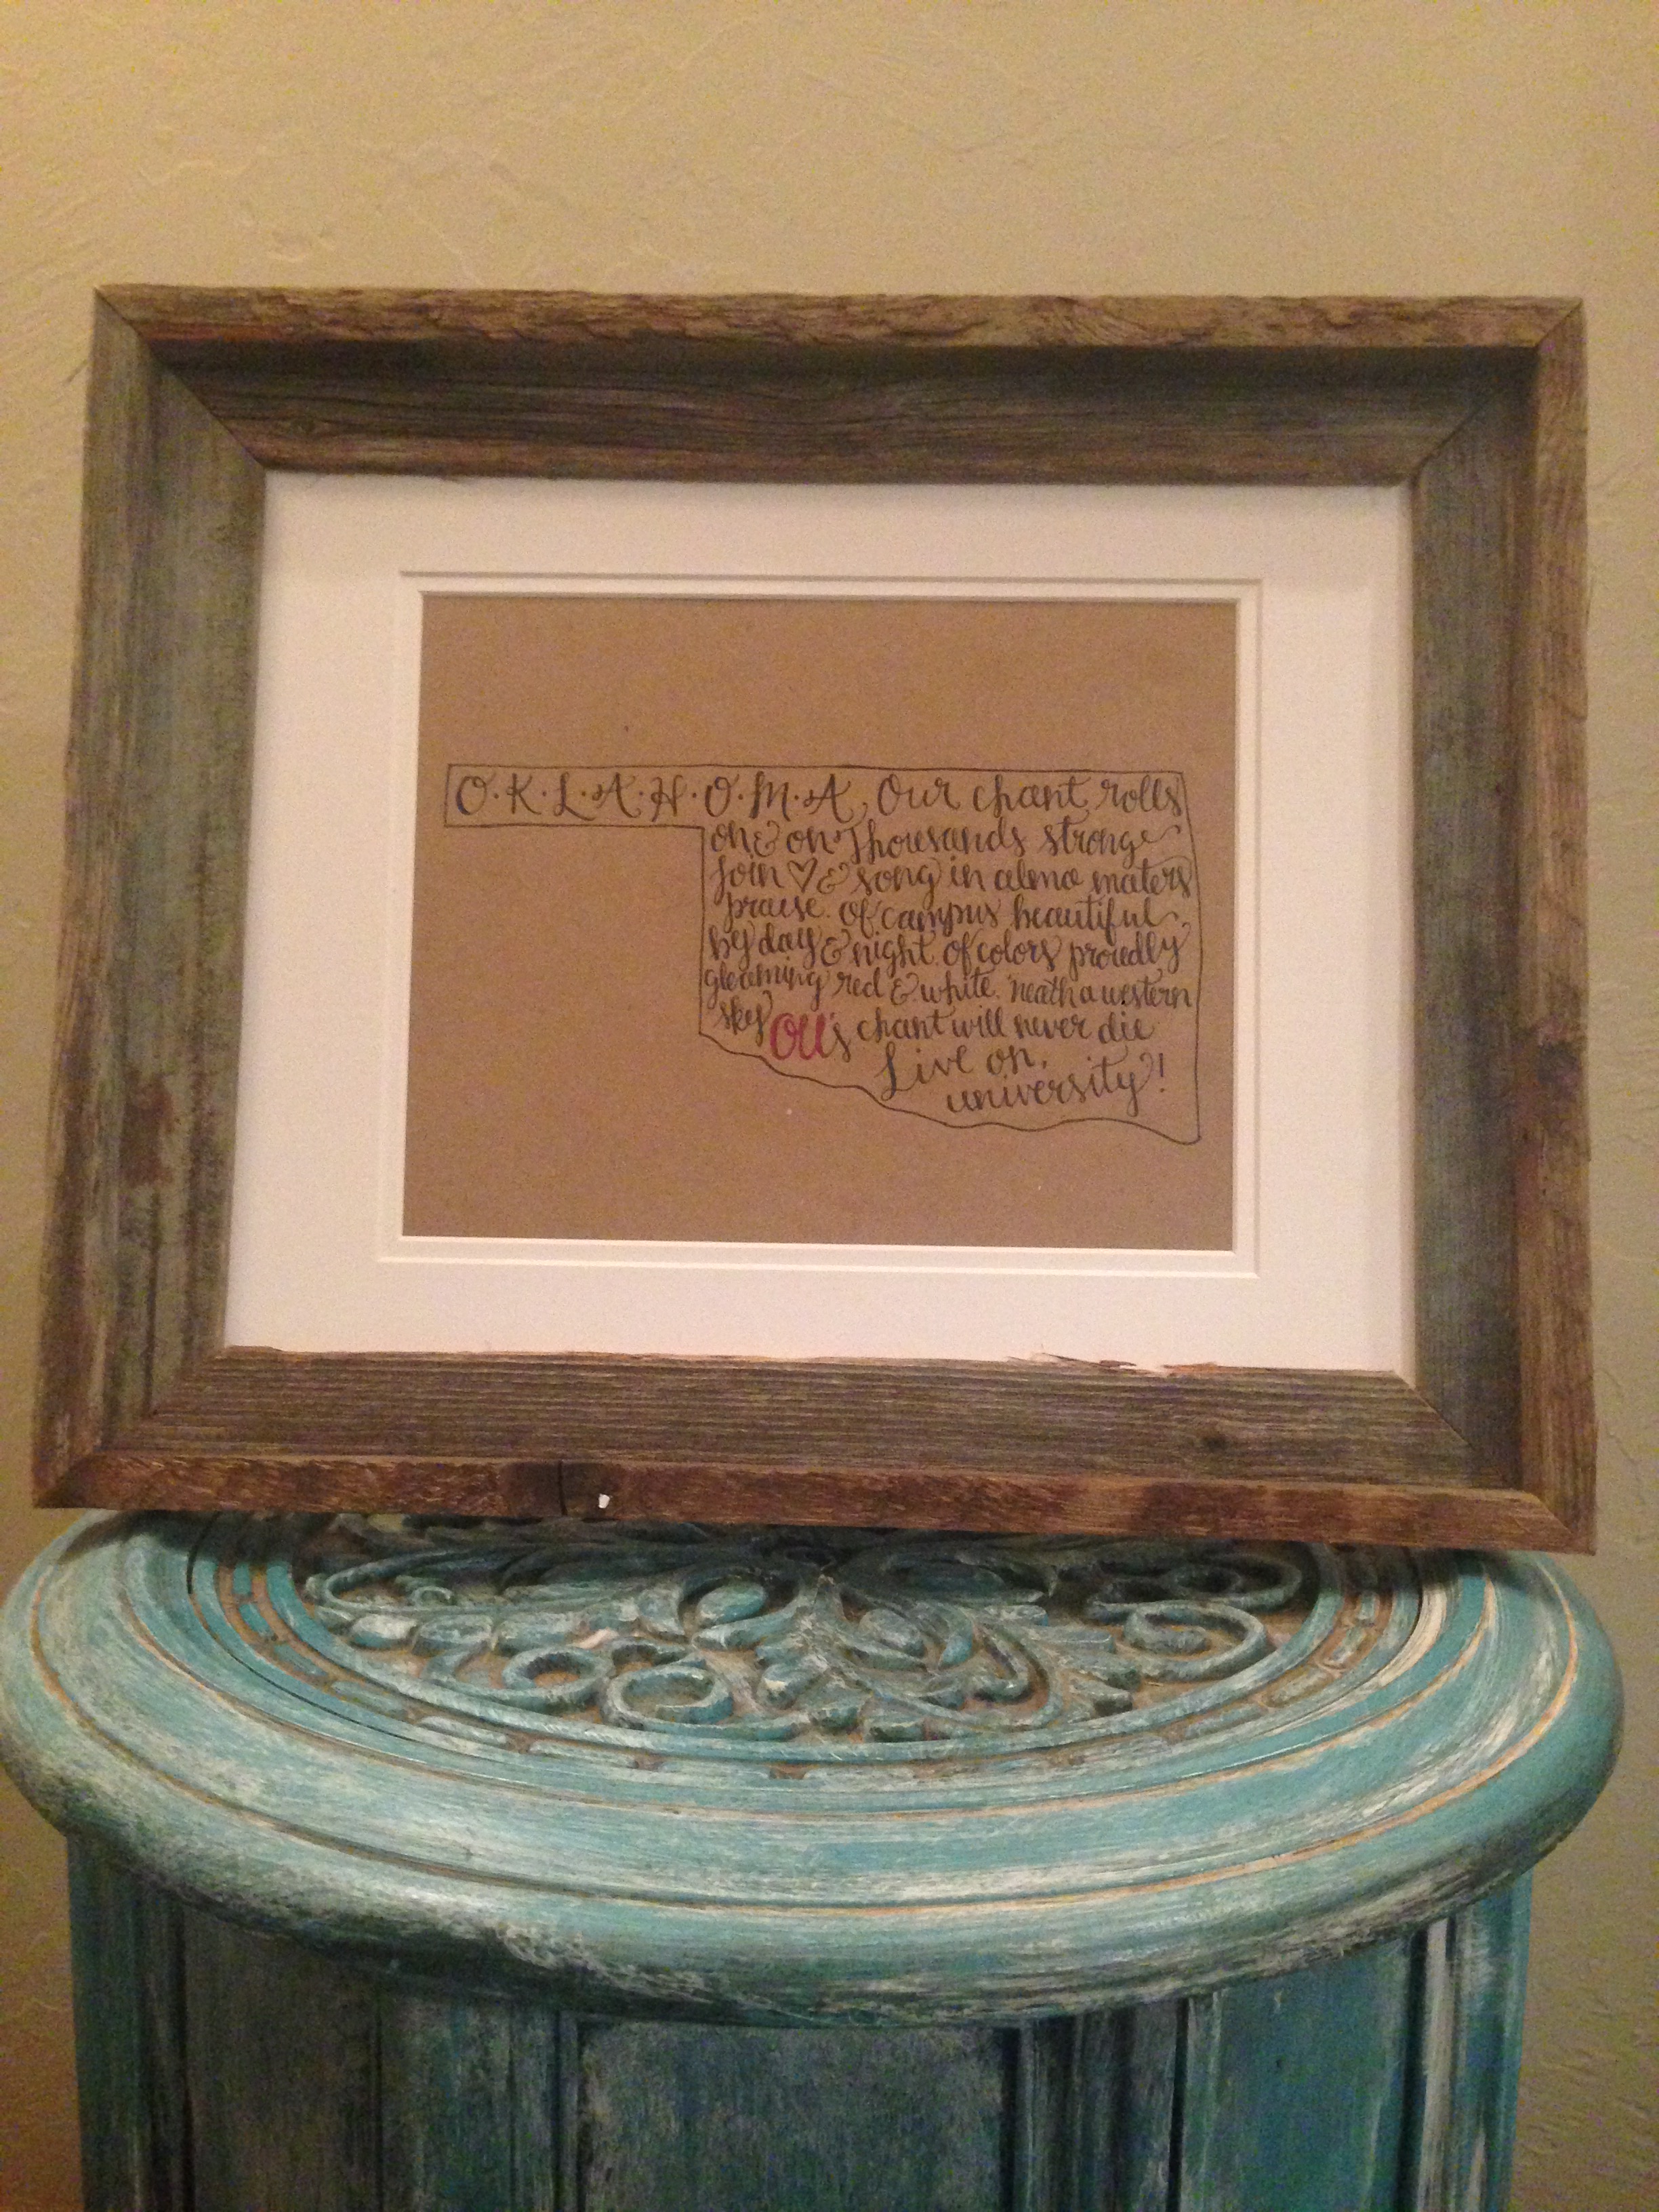 O·K·L·A·H·O·M·A, Our chant rolls
on & on Thousands strong
Join ♡ & song in alma maters
praise. Of campus beautiful,
by day & night. of colors proudly
gleaming red & white. 'neath a western
sky OU's chant will never die
Live on,
university!